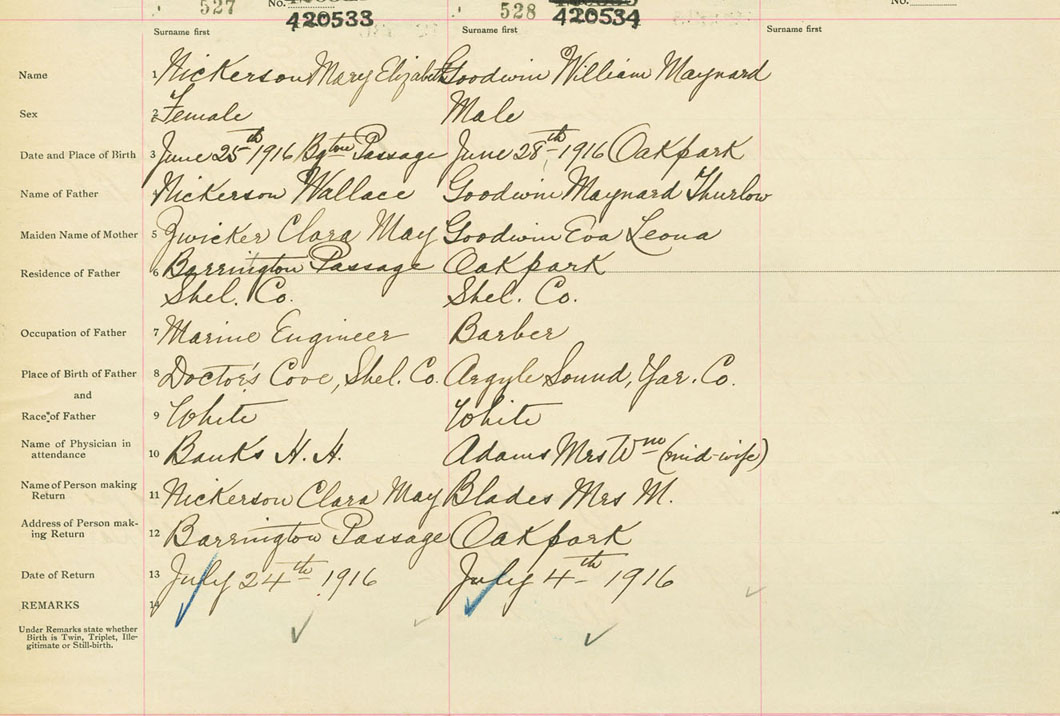 527 No. 420533 528 420534 No.
Surname first Surname first Surname first
Name 1 Nickerson Mary Elizabeth Goodwin William Maynard
Sex 2 Female Male
Date and Place of Birth 3 June 25th 1916 Bgton Passage June 28th 1916 Oakpark
Name of Father 4 Nickerson Wallace Goodwin Maynard Thurlow
Maiden Name of Mother 5 Zwicker Clara May Goodwin Eva Leona
Residence of Father 6 Barrington Passage Oakpark
Shel. Co. Shel. Co.
Occupation of Father 7 Marine Engineer Barber
Place of Birth of Father 8 Doctor's Cove, Shel. Co. Argyle Sound, Yar. Co.
and
Race of Father 9 White White
Name of Physician in
attendance 10 Banks H. H. Adams Mrs Wm (mid-wife)
Name of Person making
Return 11 Nickerson Clara May Blades Mrs M.
Address of Person mak-
ing Return 12 Barrington Passage Oakpark
Date of Return 13 July 24th 1916 July 4th 1916
REMARKS 14
Under Remarks state whether
Birth is Twin, Triplet, Ille-
gitimate or Still-birth.